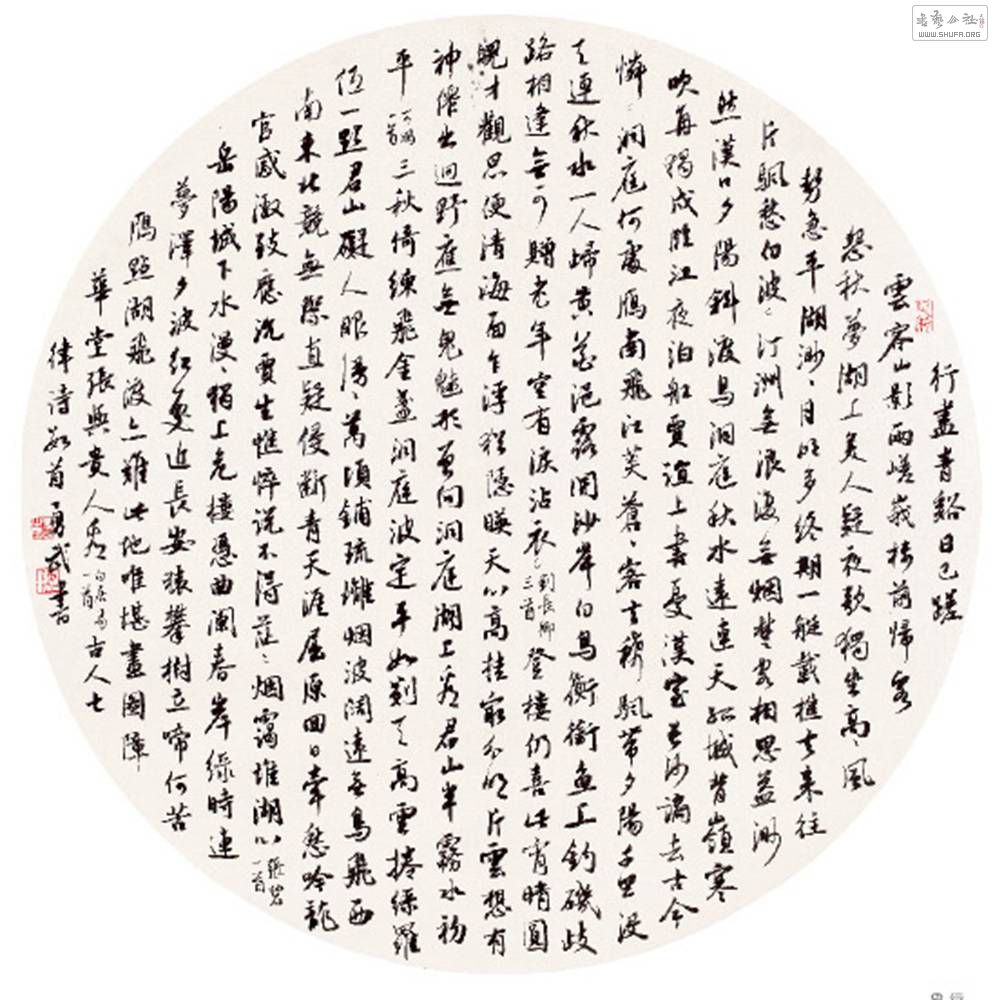 行盡青谿日已蹉
雲容山影兩嵯峨樓前歸客
怨秋夢湖上美人疑夜歌獨坐高々風
勢急平湖渺々月明多終期一艇載樵去來往
片帆愁白波々汀洲無浪復無烟楚客相思益渺
然漢口夕陽斜渡鳥洞庭秋水遠連天孤城背嶺寒
吹角獨戍臨江夜泊船賈誼上書憂漢室長沙謫去古今
憐々洞庭何處雁南飛江葵蒼々客去稀帆帶夕陽千里沒
天連秋水一人歸黃花裛露開沙岸白鳥銜魚上釣磯歧
路相逢無可贈老年空有淚沾衣々劉長卿三首登樓仍喜此宵晴圓
魄才觀思便清海面乍浮猶隱映天心高挂最分明片雲想有
神僊出迥野應無鬼魅形曾向洞庭湖上看君山半霧水初
平可朋一首三秋倚練飛金盞洞庭波定平如剗天高雲捲綠羅
低一點君山礙人眼漫々萬頃鋪琉璃烟波闊遠無鳥飛西
南東北競無際直疑侵斷青天涯屈原回日牽愁吟龍
宮感激致應沈賈生憔悴說不得茫々烟靄堆湖心張碧一首
岳陽城下水漫々獨上危樓憑曲闌春岸綠時連
夢澤夕波紅處近長安猿攀樹立啼何苦
雁點湖飛渡亦難此地唯堪畫圖障
華堂張與貴人看白居易一首古人七
律詩數首勇武書
WWW.SHUFA.ORG